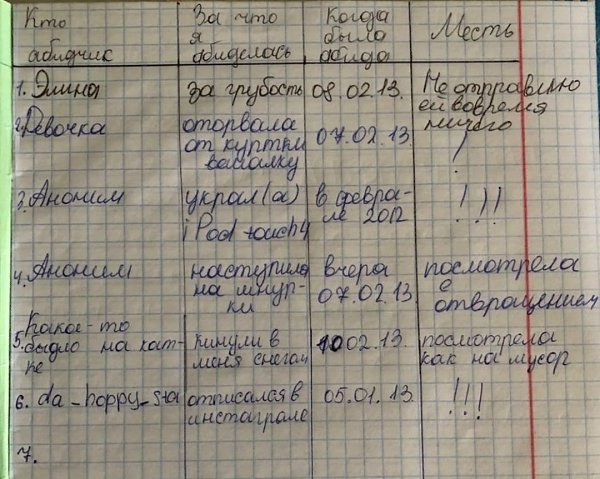 Кто
абидчик
За что
я
абиделась
Когда
была
абида
Месть
1. Элина
за грубость
08.02.13.
Не отправлю
ей вовремя
ничего!
2. Девочка
оторвала
от куртки
07.02.13.
3. Аноним
украл(а)
iPod touch 4
в февра-
ле 2012
!!!
4. Аноним
наступила
на шнур-
ки
вчера
07.02.13
посмотрела
с
отвращением
Какое-то
5. быдло на кат-
ке
кинули в
меня снегом
10.02.13.
посмотрела
как на мусор
6. da_hoppy_sta
отписался в
инстаграме
05.01.13.
!!!
7.